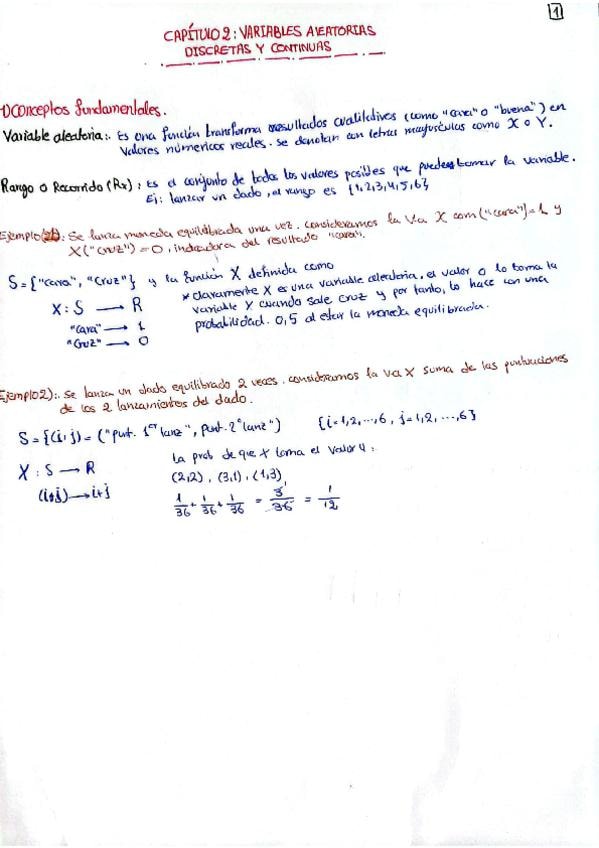 1
CAPÍTULO 2: VARIABLES ALEATORIAS
DISCRETAS Y CONTINUAS
1) Conceptos fundamentales.
Variable aleatoria:. Es una función transforma resultados cualitativos (como "cara" o "buena") en
valores númericos reales. Se denotan con letras mayúsculas como X o Y.
Rango o Recorrido (Rx): Es el conjunto de todos los valores posibles que puede tomar la variable.
Ej: lanzar un dado, el rango es {1,2,3,4,5,6}
Ejemplo: Se lanza moneda equilibrada una vez. consideramos la Va X com ("cara")=1, y
X("cruz")=0, indicadora del resultado "cara".
S={"cara", "Cruz"} y la función X definida como
X: S → R
"cara" → 1
"Cruz" → 0
* claramente X es una variable aleatoria, el valor 0 lo toma la
variable X cuando sale cruz y por tanto, lo hace con una
probabilidad 0,5 al estar la moneda equilibrada.
Ejemplo 2):. Se lanza un dado equilibrado 2 veces. consideramos la va X suma de las puntuaciones
de los 2 lanzamientos del dado.
S={(i,j)=("punt. 1er lanz", punt. 2º lanz") {i=1,2,...,6, j=1,2,...,6}
X: S → R
(i,j) → i+j
La prob de que X toma el valor 4:
(2,2), (3,1), (1,3)
1/36 + 1/36 + 1/36 = 3/36 = 1/12